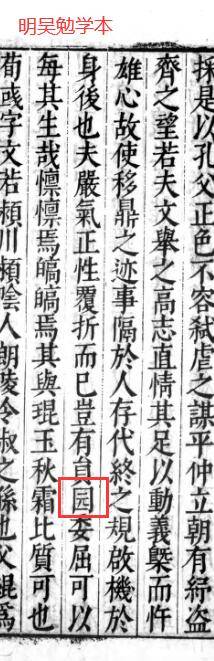 明吴勉学本
採是以孔父正色不容弒虐之謀平仲立朝有紓盜
齊之望若夫文舉之高志直情其足以動義槩而忤
雄心故使移鼎之迹事隔於人存代終之規啟機於
身後也夫嚴氣正性覆折而已豈有員园委屈可以
每其生哉懍懍焉皜皜焉其與琨玉秋霜比質可也
荀彧字文若潁川潁陰人朗陵令淑之孫也父緄爲